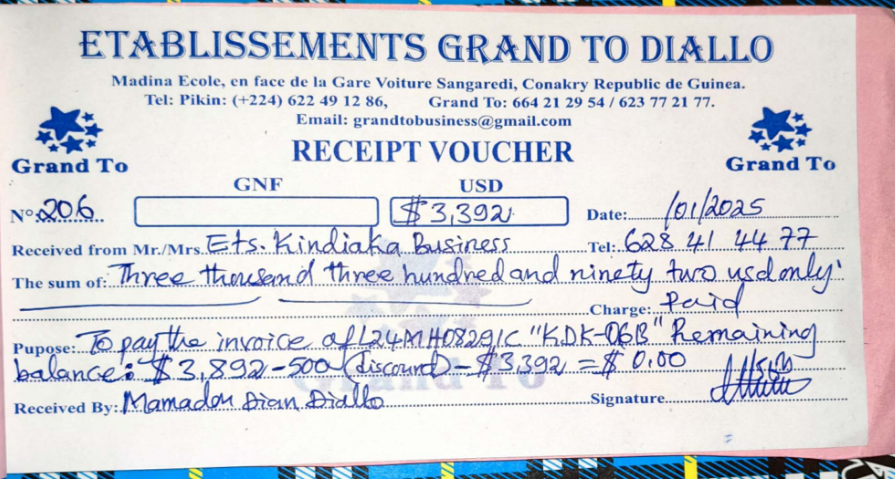 ETABLISSEMENTS GRAND TO DIALLO
Madina Ecole, en face de la Gare Voiture Sangaredi, Conakry Republic de Guinea.
Tel: Pikin: (+224) 622 49 12 86, Grand To: 664 21 29 54 / 623 77 21 77.
Email: grandtobusiness@gmail.com
Grand To RECEIPT VOUCHER Grand To
GNF USD
N°: 206 $3,392 Date: /01/2025
Received from Mr./Mrs. Ets. Kindiaka Business Tel: 628 41 44 77
The sum of: Three thousand three hundred and ninety two usd only
Charge: Paid
Pupose: To pay the invoice of L24MH0829/C "KDK-06B" Remaining
balance: $3,892 - 500 (discount) - $3,392 = $0.00
Received By: Mamadou Dian Diallo Signature
Grand To